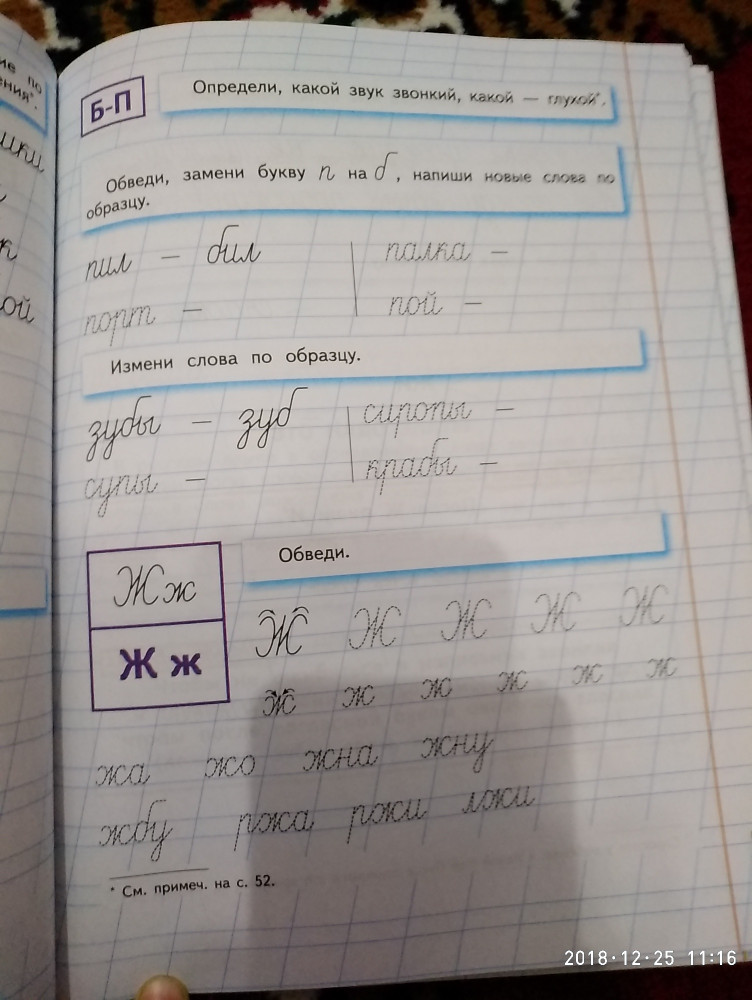 ие по
ения*.
шки
к
ой
Б-П
Определи, какой звук звонкий, какой — глухой*.
Обведи, замени букву п на б, напиши новые слова по
образцу.
пил — бил палка —
порт — пой —
Измени слова по образцу.
зубы — зуб сиропы —
супы — крабы —
Жж
Ж ж
Обведи.
Ж Ж Ж Ж Ж
ж ж ж ж ж ж
жа жо жна жну
жбу ржа ржи лжи
* См. примеч. на с. 52.
2018·12·25 11:16